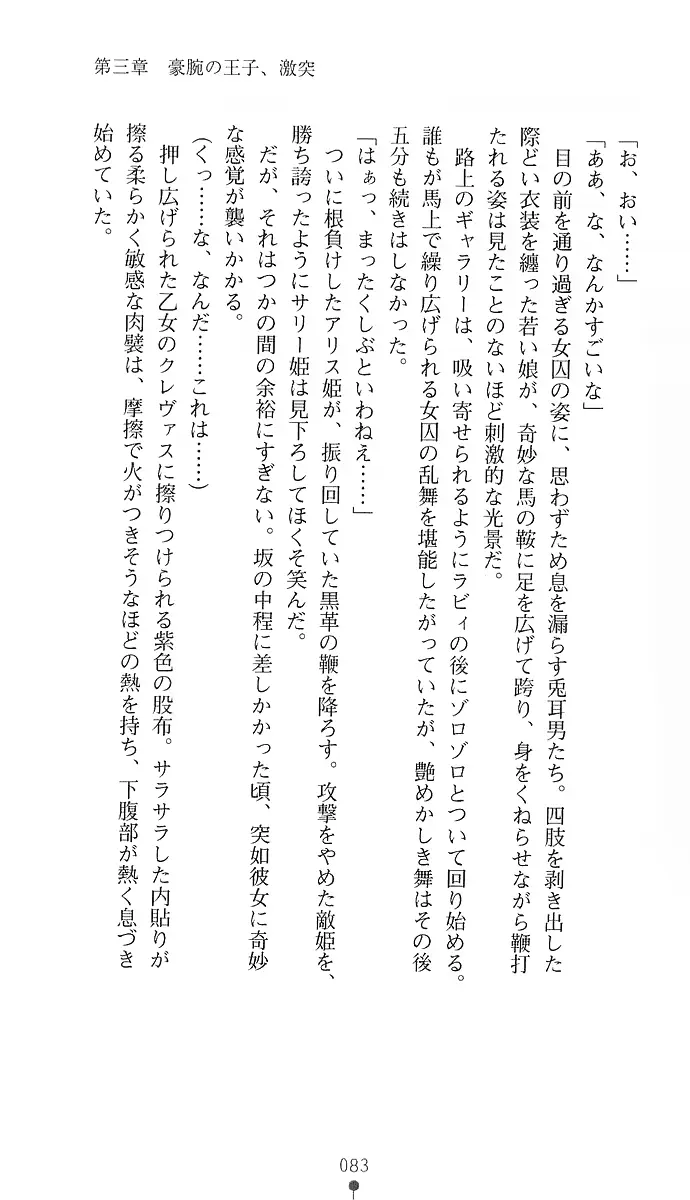 第三章　豪腕の王子、激突
「お、おい……」
「ああ、な、なんかすごいな」
　目の前を通り過ぎる女囚の姿に、思わずため息を漏らす兎耳男たち。四肢を剥き出した
際どい衣装を纏った若い娘が、奇妙な馬の鞍に足を広げて跨り、身をくねらせながら鞭打
たれる姿は見たことのないほど刺激的な光景だ。
　路上のギャラリーは、吸い寄せられるようにラビィの後にゾロゾロとついて回り始める。
誰もが馬上で繰り広げられる女囚の乱舞を堪能したがっていたが、艶めかしき舞はその後
五分も続きはしなかった。
「はぁっ、まったくしぶといわねえ……」
　ついに根負けしたアリス姫が、振り回していた黒革の鞭を降ろす。攻撃をやめた敵姫を、
勝ち誇ったようにサリー姫は見下ろしてほくそ笑んだ。
　だが、それはつかの間の余裕にすぎない。坂の中程に差しかかった頃、突如彼女に奇妙
な感覚が襲いかかる。
（くっ……な、なんだ……これは……）
　押し広げられた乙女のクレヴァスに擦りつけられる紫色の股布。サラサラした内貼りが
擦る柔らかく敏感な肉襞は、摩擦で火がつきそうなほどの熱を持ち、下腹部が熱く息づき
始めていた。
083